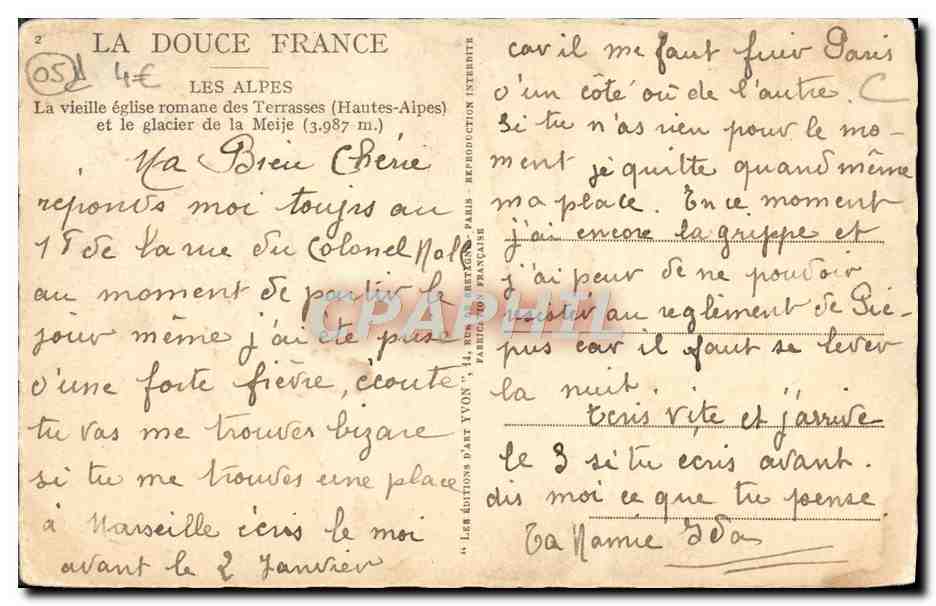 2
LA DOUCE FRANCE
05
4€
LES ALPES
La vieille église romane des Terrasses (Hautes-Alpes)
et le glacier de la Meije (3.987 m.)
Ma Bien Chérie
réponds moi toujrs au
de la rue du Colonel Moll
au moment de partir le
jour même j'ai été prise
d'une forte fièvre, écoute
tu vas me trouver bizare
si tu me trouves une place
à Marseille écris le moi
avant le 2 Janvier
" LES ÉDITIONS D'ART YVON ", 14, RUE DE BRETAGNE - PARIS - REPRODUCTION INTERDITE
FABRICATION FRANÇAISE
car il me faut fuir Paris
d'un côté où de l'autre.
Si tu n'as rien pour le mo-
ment je quitte quand même
ma place. En ce moment
j'ai encore la grippe et
j'ai peur de ne pouvoir
resister au reglement de Pic-
pus car il faut se lever
la nuit.
Ecris vite et j'arrive
le 3 si tu ecris avant.
dis moi ce que tu pense
Ta Mamie Ida
CPAPHIL